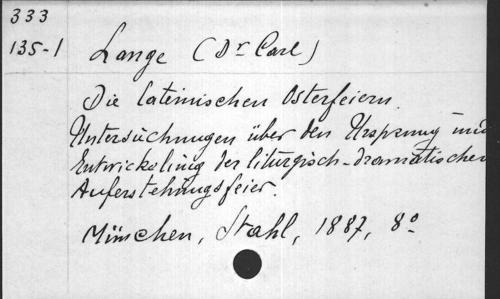 333
135-1
Lange (Dr Carl)
Die lateinischen Osterfeiern.
Untersuchungen über den Ursprung und
Entwickelung der liturgisch-dramatischen
Auferstehungsfeier.
München, Stahl, 1887, 8º